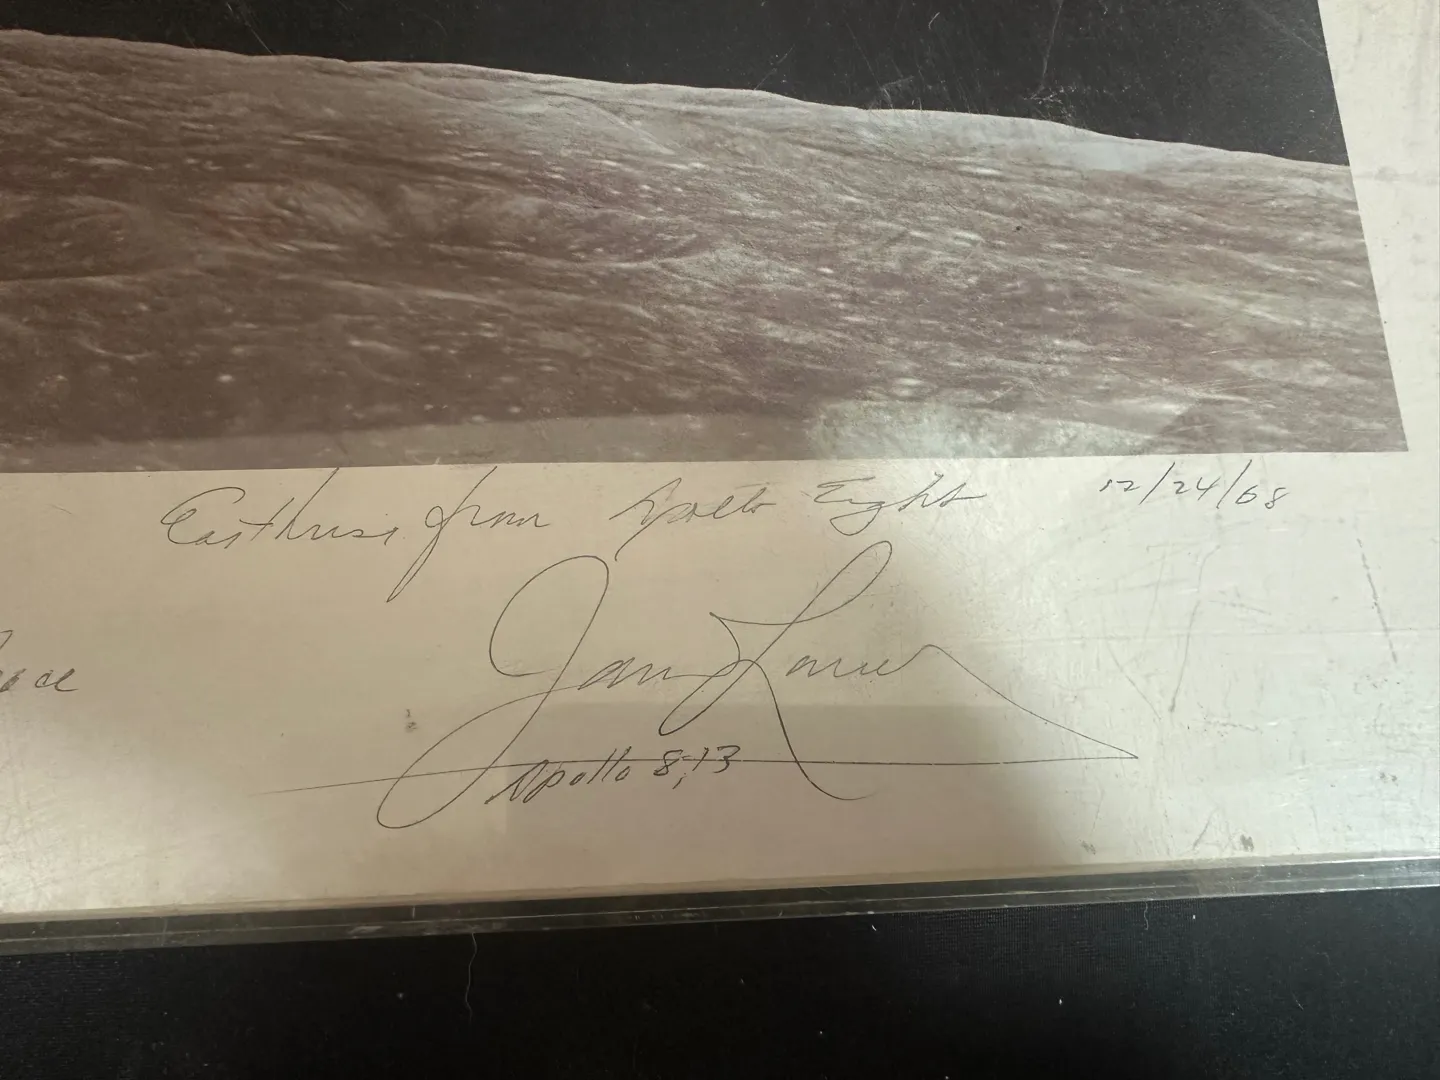 Earthrise from Apollo Eight 12/24/68
James Lovell
Apollo 8, 13